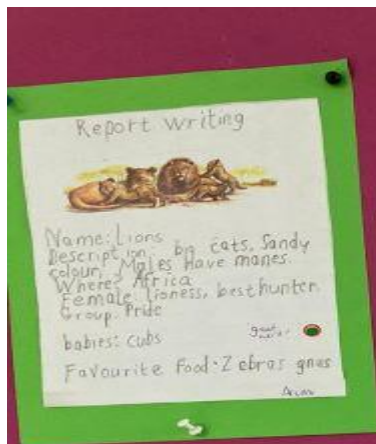 Report Writing
Name: Lions
Description: big cats, Sandy
colour, Males have manes.
Where? Africa
Female: lioness, best hunter
Group: Pride
babies: cubs
Favourite food. Zebras gnus